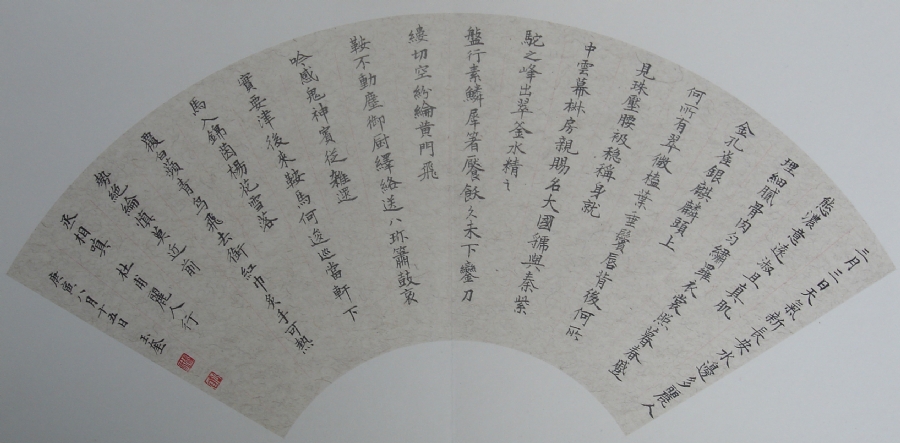 三月三日天氣新長安水邊多麗人
態濃意遠淑且真肌
理細膩骨肉勻繡羅衣裳照暮春蹙
金孔雀銀麒麟頭上
何所有翠微榼葉垂鬢唇背後何所
見珠壓腰衱稳稱身就
中雲幕椒房親賜名大國虢與秦紫
駝之峰出翠釜水精之
盤行素鱗犀箸饜飫久未下鑾刀
縷切空紛綸黄門飛
鞍不動塵御厨繹絡送八珎簫鼓哀
吟感鬼神賓從雜遝
實要津後來鞍馬何逡巡當軒下
馬入錦茵楊花雪落
覆白蘋青鸟飛去銜紅巾炙手可熱
勢絶倫慎莫近前
丞相嗔 杜甫 麗人行
庚寅八月十五日